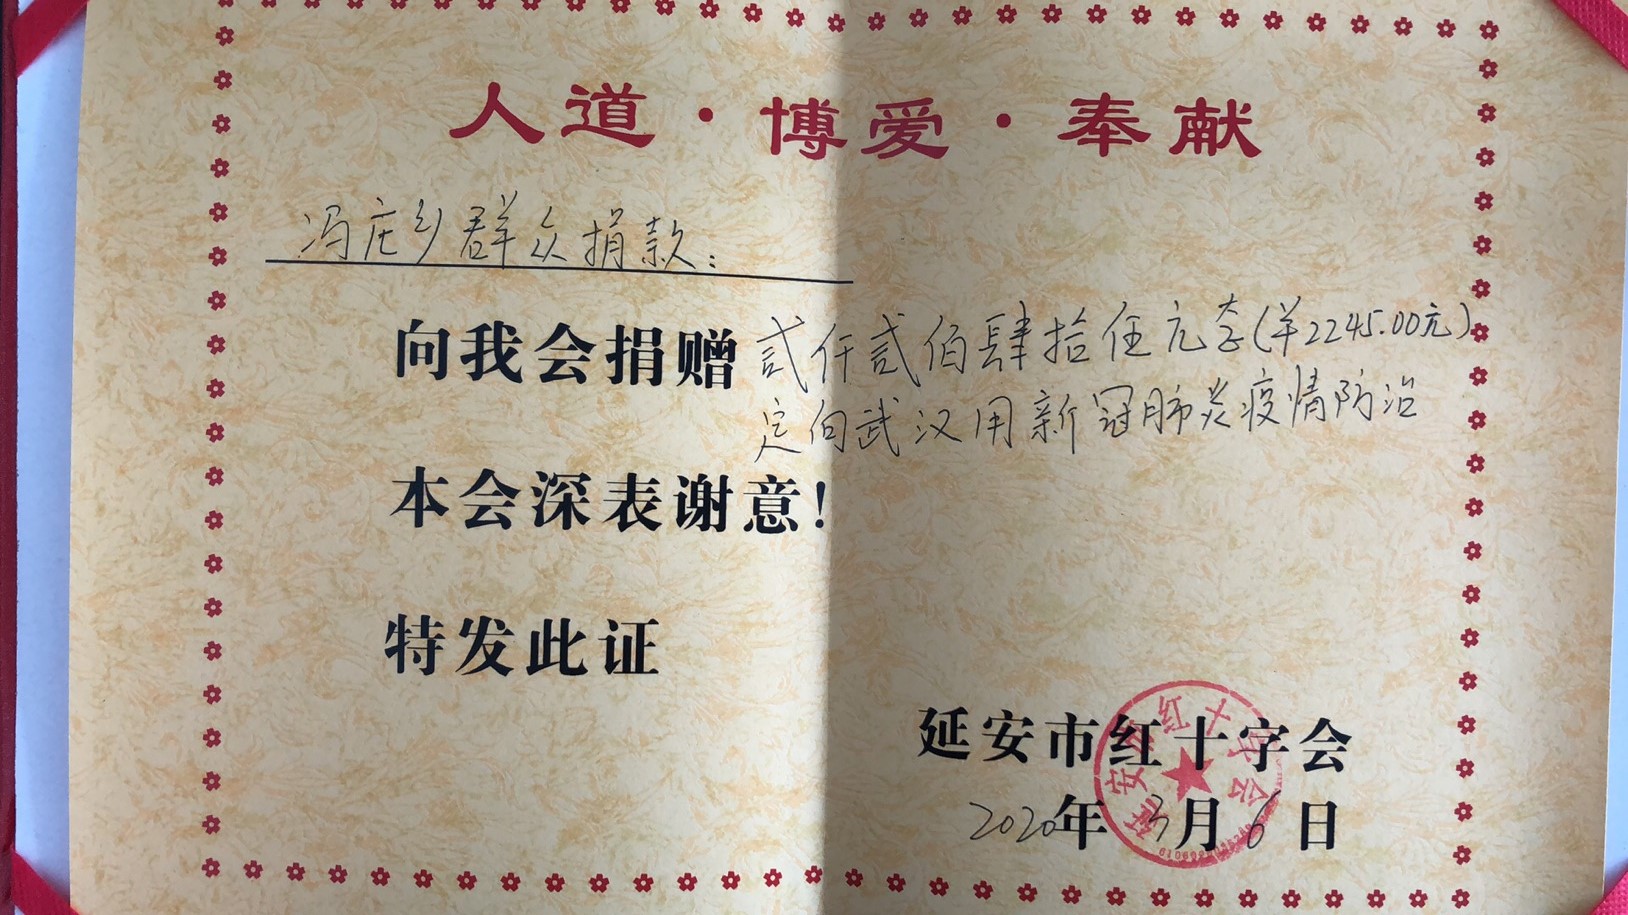 人道·博爱·奉献
冯庄乡群众捐款：
向我会捐贈贰仟贰佰肆拾伍元整(¥2245.00元)
定向武汉用新冠肺炎疫情防治
本会深表谢意!
特发此证
延安市红十字会
2020年3月6日
延安市红十字会